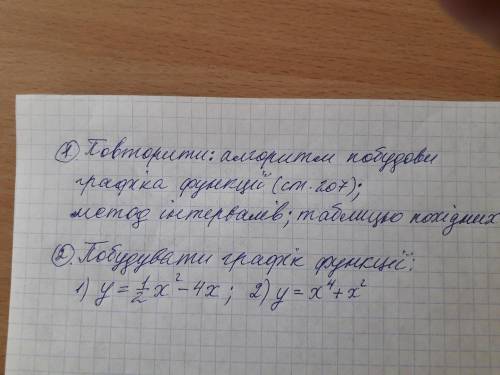 ① Повторити: алгоритм побудови
графіка функції (ст. 207);
метод інтервалів; таблицю похідних
② Побудувати графік функції:
1) y = 1/2 x² - 4x ; 2) y = x⁴ + x²